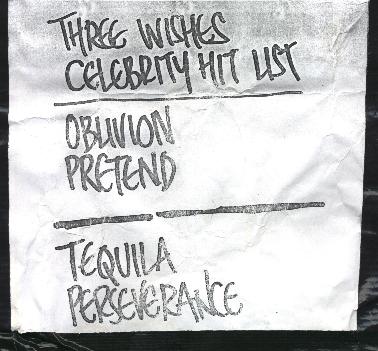 THREE WISHES
CELEBRITY HIT LIST
OBLIVION
PRETEND
TEQUILA
PERSEVERANCE